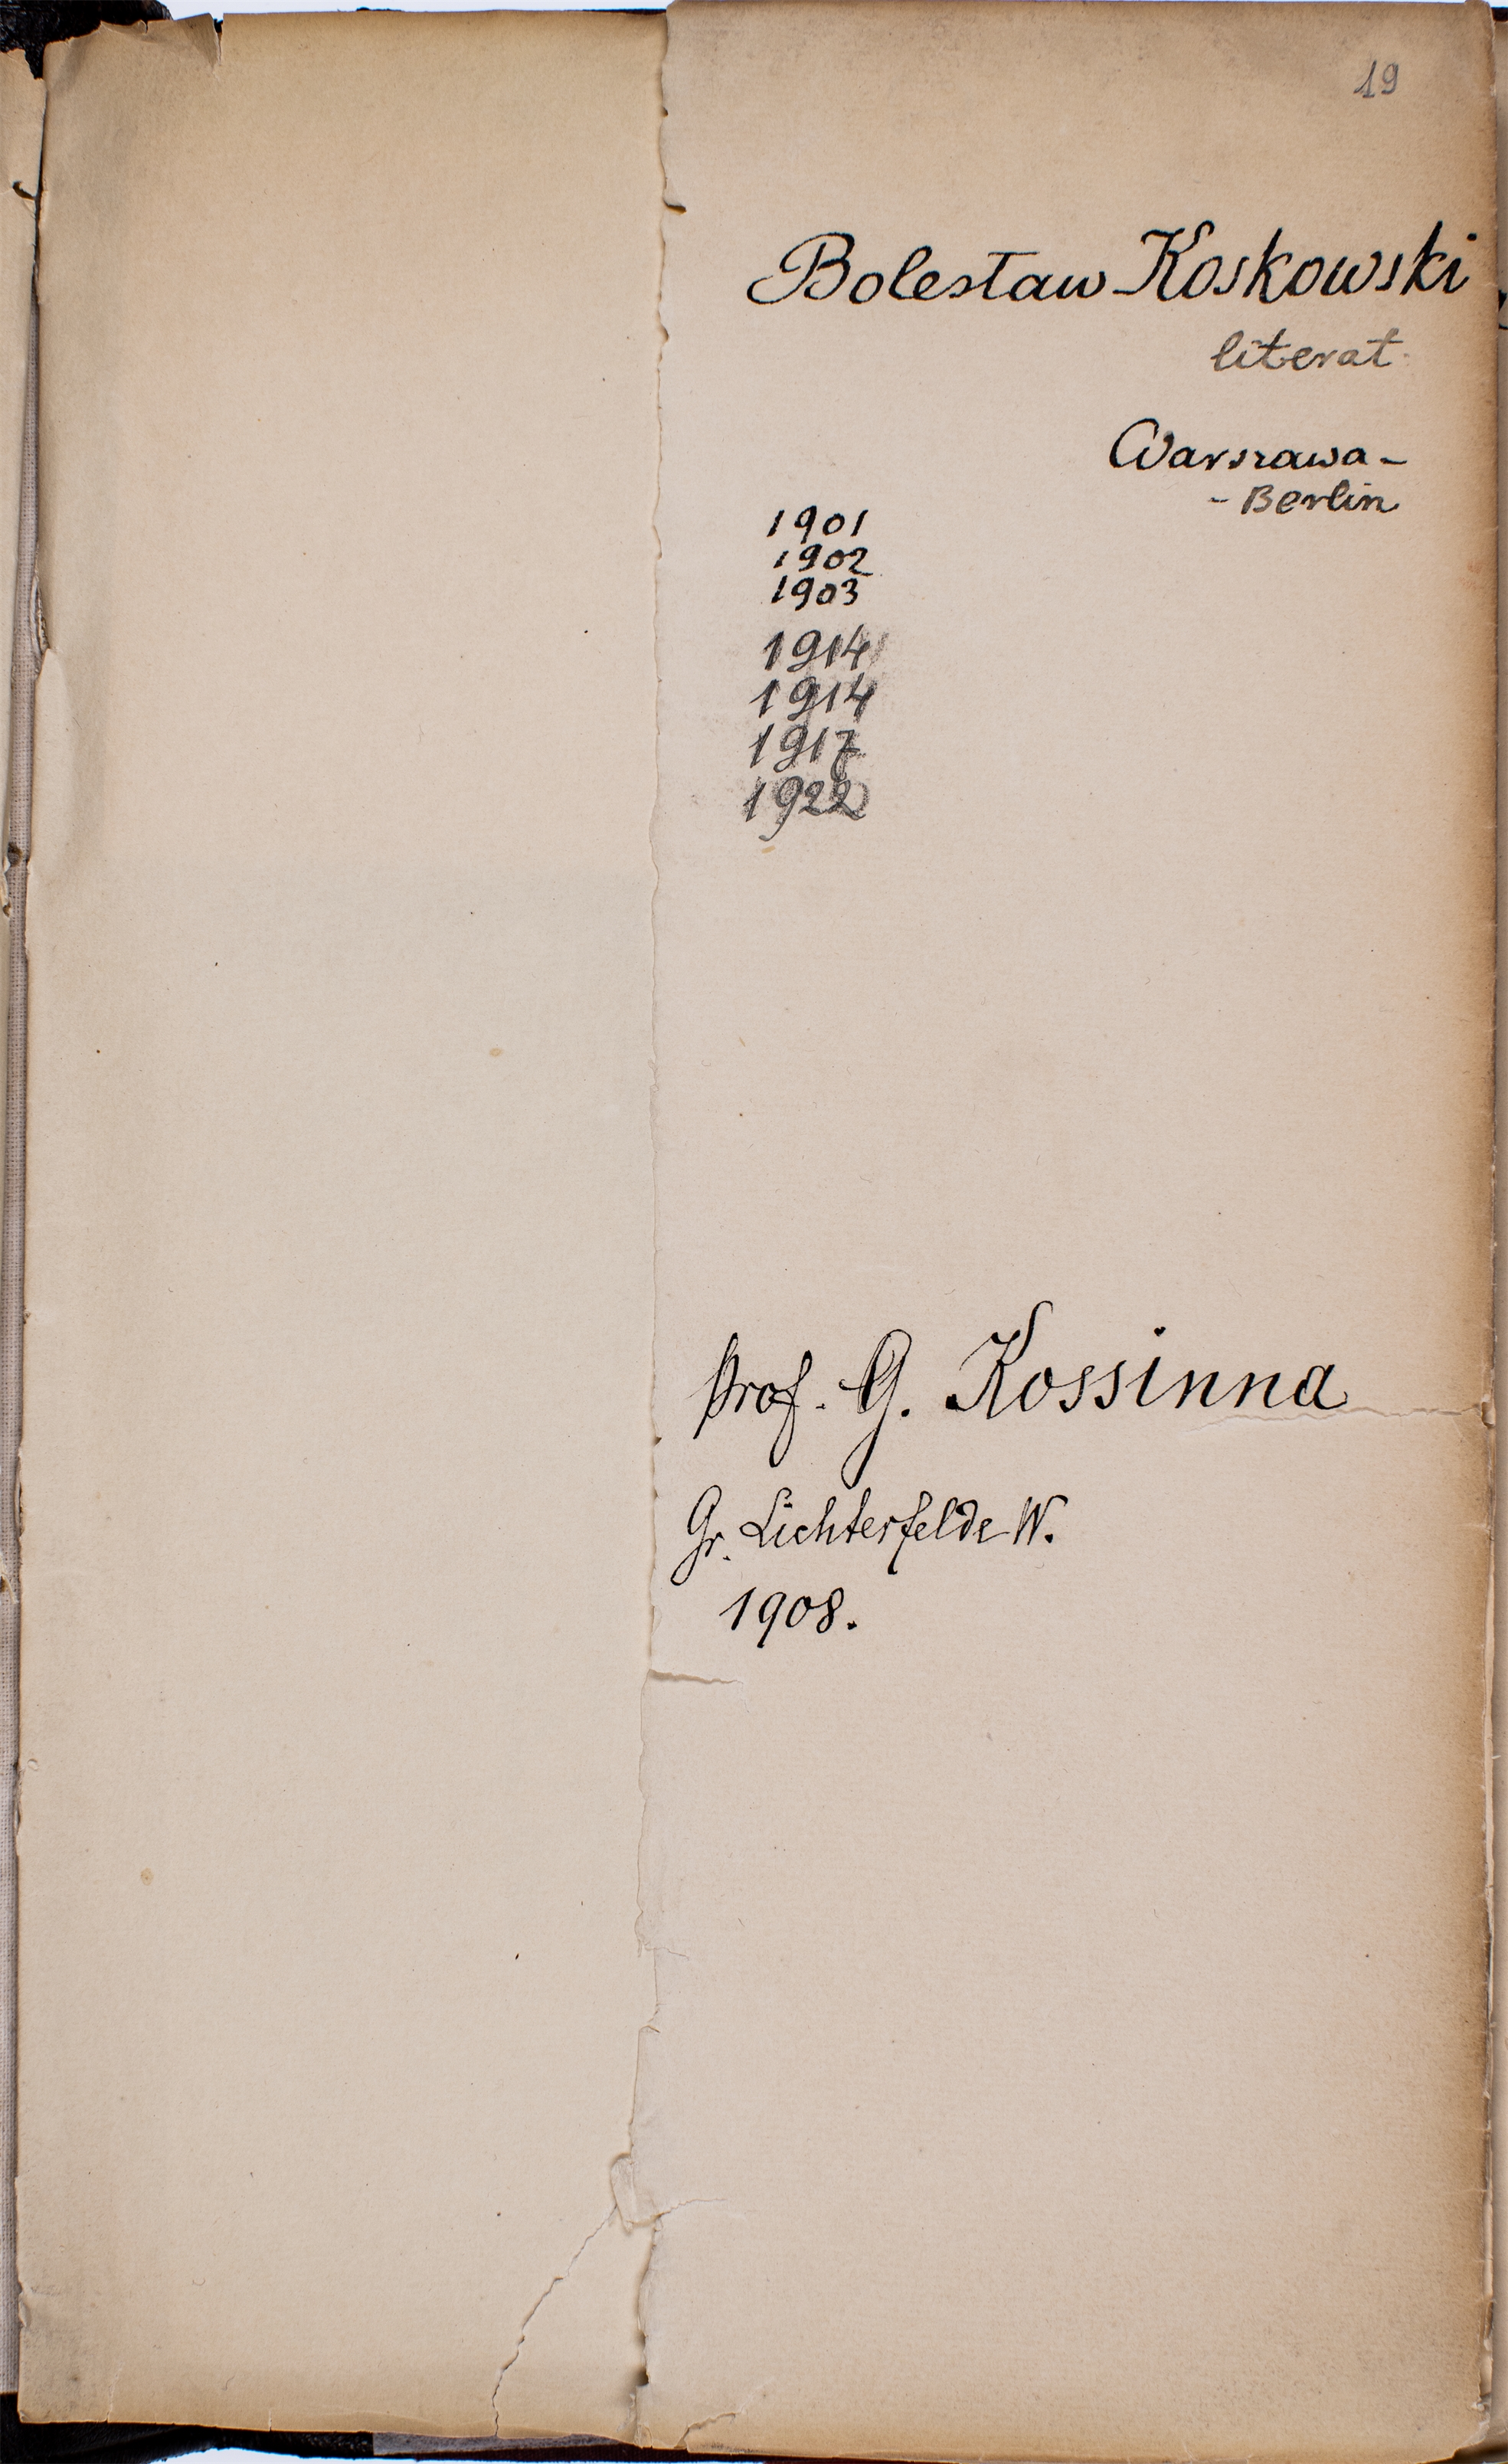 19
Bolesław Koskowski
literat
Warszawa -
- Berlin
1901
1902
1903
1914
1914
1917
1922
Prof. G. Kossinna
Gr. Lichterfelde W.
1908.